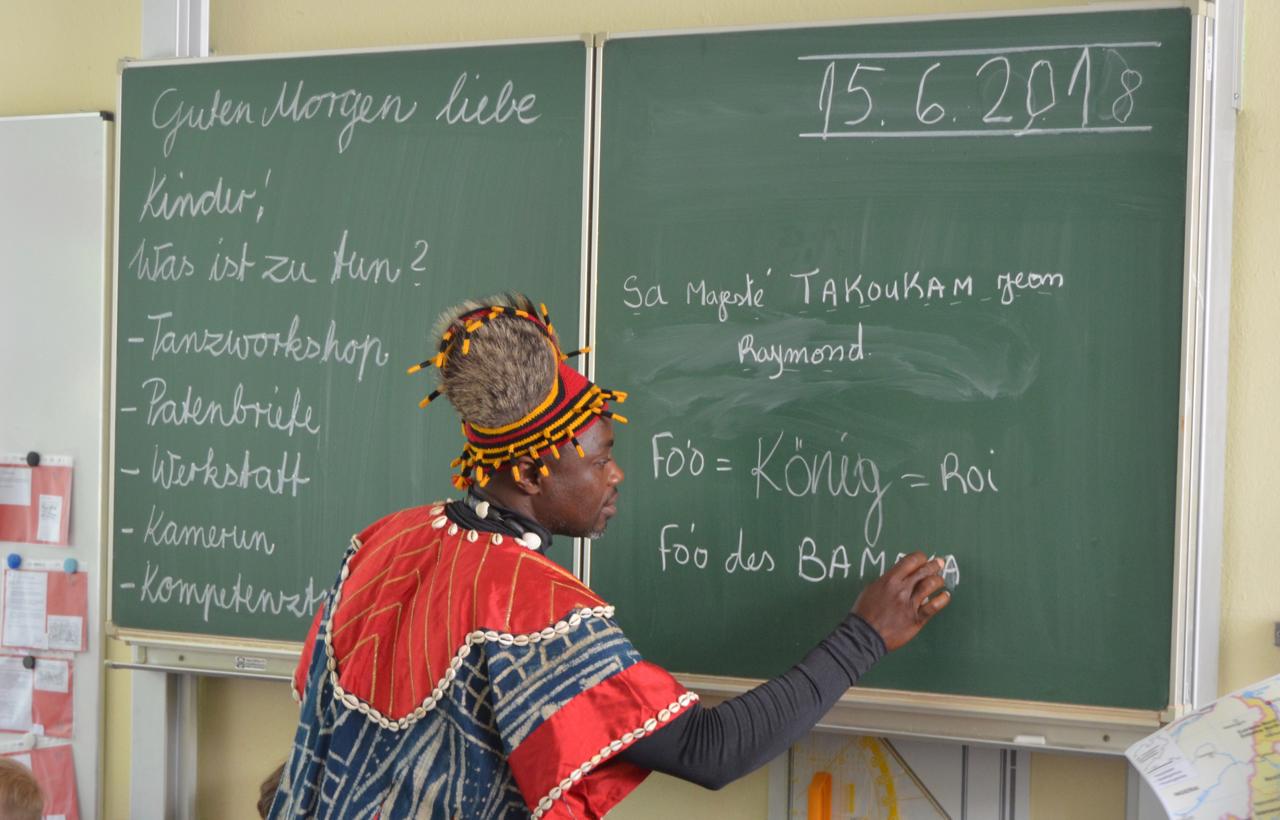 Guten Morgen liebe
Kinder!
Was ist zu tun?
- Tanzworkshop
- Patenbriefe
- Werkstatt
- Kamerun
15.6.2018
Sa Majesté TAKOUKAM jean
Raymond.
Fo'o = König = Roi
Fo'o des